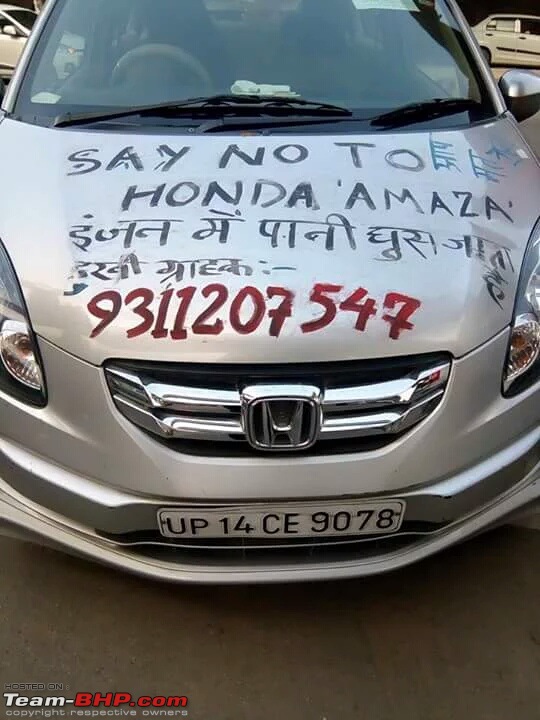 SAY NO TO
HONDA 'AMAZA'
इंजन में पानी घुस जाता है
दुखी ग्राहक :-
9311207547
UP 14 CE 9078
HOSTED ON
Team-BHP.com
copyright respective owners